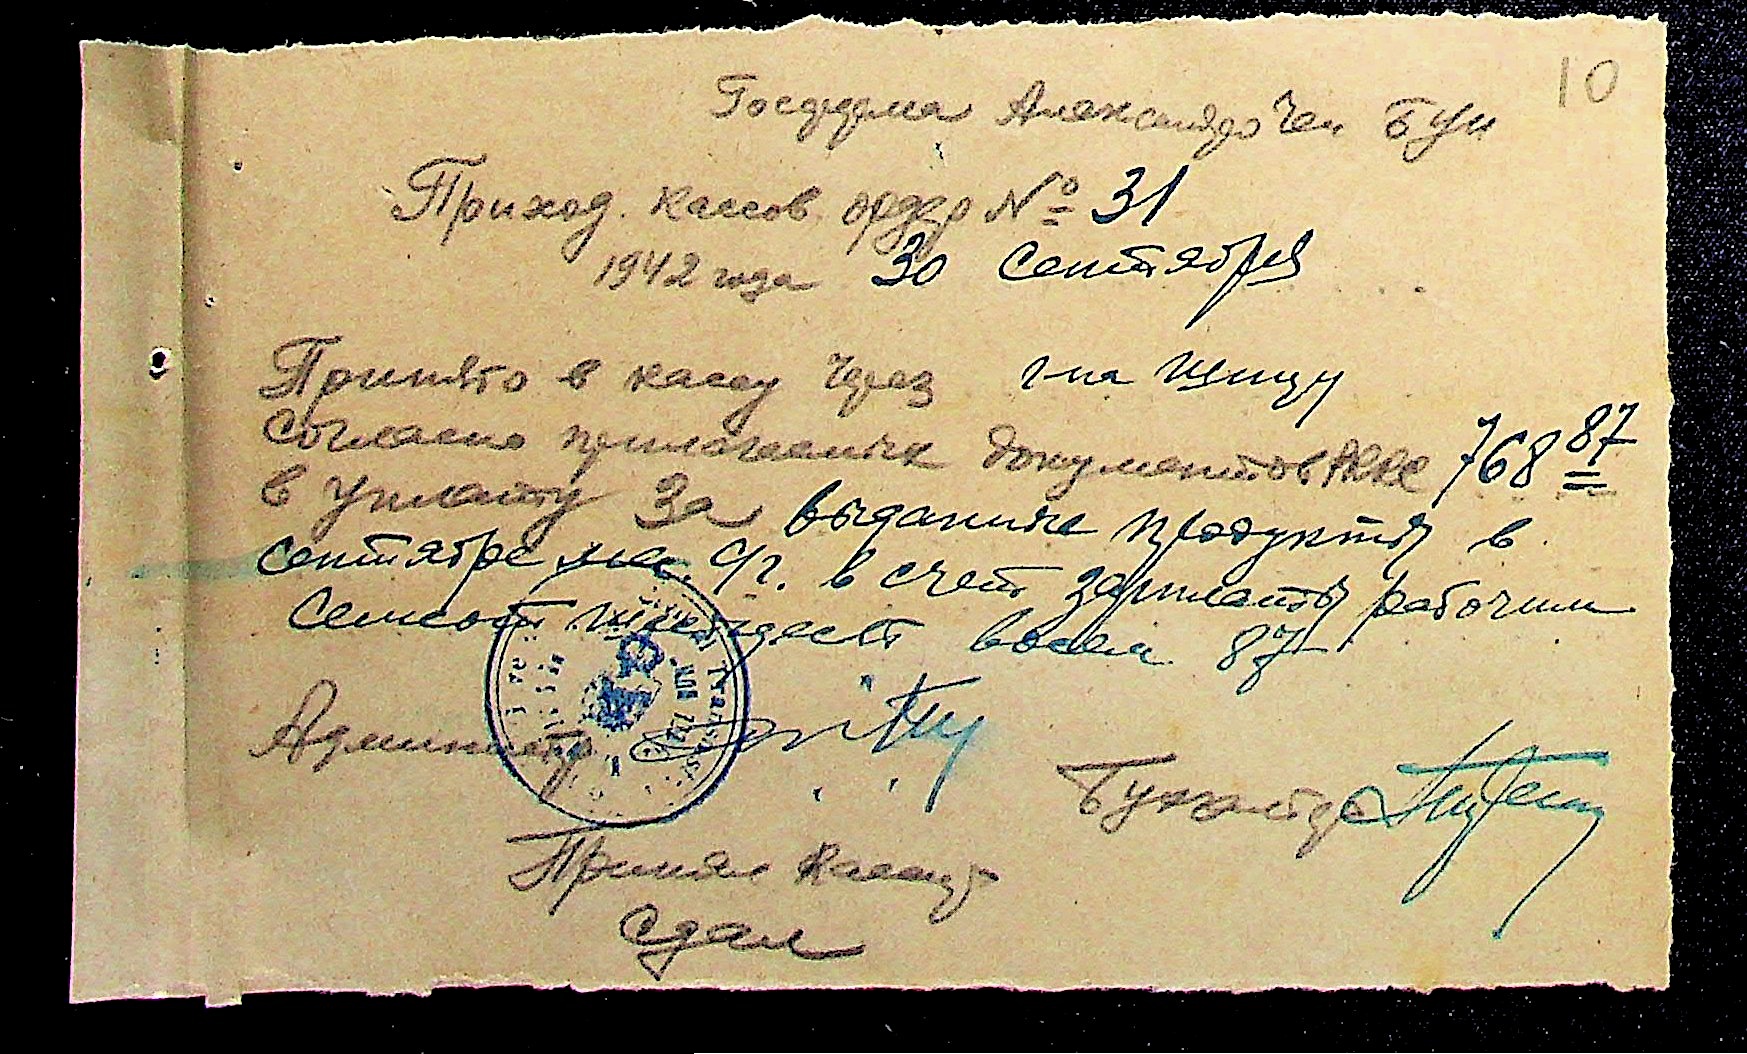 10
Госферма Александрочен Бун
Приход. кассов. ордер № 31
1942 года 30 сентября
Принято в кассу через г-на
согласно прилагаемых документов RKKS 768 87
в уплату за выданые продукты в
сентябре мес. с/г. в счет зарплаты рабочим
Семсот шестдесят восем 87
Админист
Бухгалтер
Принял Кассир
Сдал